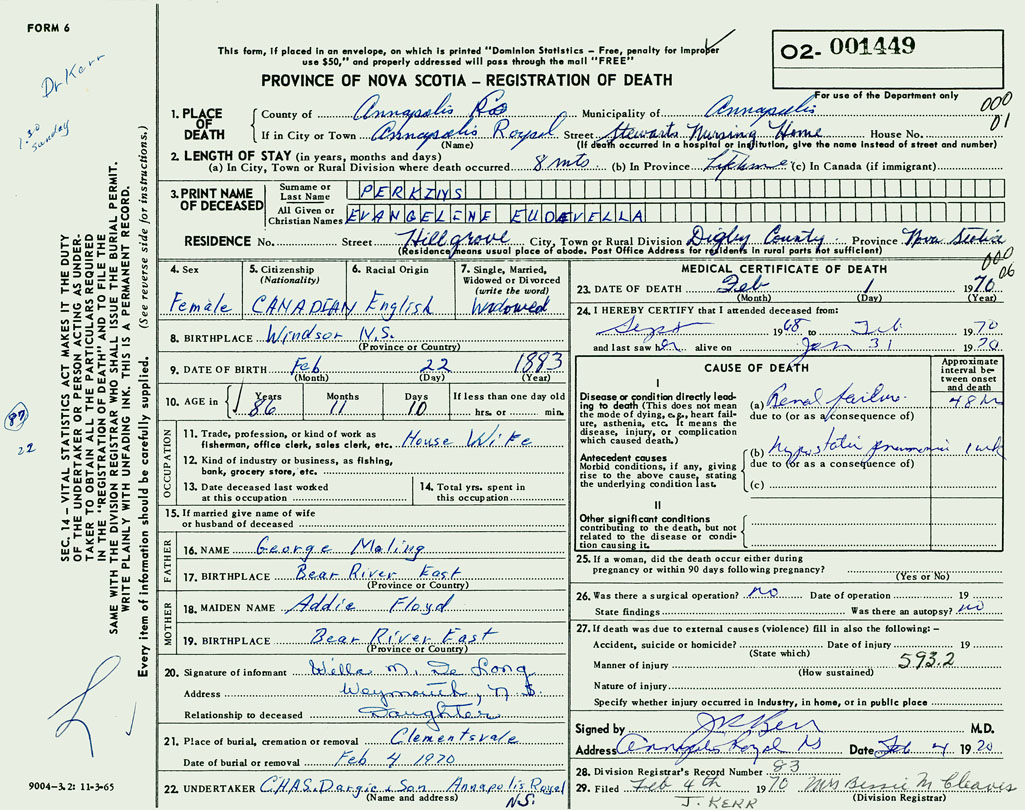 FORM 6
Dr Kerr
1.30
Sunday
This form, if placed in an envelope, on which is printed "Dominion Statistics – Free, penalty for improper
use $50," and properly addressed will pass through the mail "FREE"
PROVINCE OF NOVA SCOTIA – REGISTRATION OF DEATH
02- 001449
For use of the Department only
000
01
1. PLACE OF DEATH
County of Annapolis Co Municipality of Annapolis
If in City or Town Annapolis Royal Street Stewarts Nursing Home House No.
(Name) (If death occurred in a hospital or institution, give the name instead of street and number)
2. LENGTH OF STAY (in years, months and days)
(a) In City, Town or Rural Division where death occurred 8 mts (b) In Province Lifetime (c) In Canada (if immigrant)
3. PRINT NAME OF DECEASED
Surname or Last Name PERKINS
All Given or Christian Names EVANGELINE EUDAVELLA
RESIDENCE No. Street Hillgrove City, Town or Rural Division Digby County Province Nova Scotia
(Residence means usual place of abode. Post Office Address for residents in rural parts not sufficient)
4. Sex
Female
5. Citizenship
(Nationality)
CANADEAN
6. Racial Origin
English
7. Single, Married,
Widowed or Divorced
(write the word)
Widowed
8. BIRTHPLACE Windsor N.S.
(Province or Country)
9. DATE OF BIRTH Feb 22 1883
(Month) (Day) (Year)
10. AGE in Years 86 Months 11 Days 10 If less than one day old
hrs. or min.
OCCUPATION
11. Trade, profession, or kind of work as House Wife
fisherman, office clerk, sales clerk, etc.
12. Kind of industry or business, as fishing,
bank, grocery store, etc.
13. Date deceased last worked
at this occupation
14. Total yrs. spent in
this occupation
15. If married give name of wife
or husband of deceased
FATHER
16. NAME George Maling
17. BIRTHPLACE Bear River East
(Province or Country)
MOTHER
18. MAIDEN NAME Addie Floyd
19. BIRTHPLACE Bear River East
(Province or Country)
20. Signature of informant Willa M. De Long
Address Weymouth, N.S.
Relationship to deceased Daughter
21. Place of burial, cremation or removal Clementsvale
Date of burial or removal Feb 4 1970
22. UNDERTAKER CHAS. Dargie & Son Annapolis Royal
(Name and address) N.S.
MEDICAL CERTIFICATE OF DEATH
000
06
23. DATE OF DEATH Feb 1 1970
(Month) (Day) (Year)
24. I HEREBY CERTIFY that I attended deceased from:
Sept 1968 to Feb 1970
and last saw her alive on Jan 31 1970
CAUSE OF DEATH
Approximate
interval be-
tween onset
and death
I
Disease or condition directly lead-
ing to death (This does not mean
the mode of dying, e.g., heart fail-
ure, asthenia, etc. It means the
disease, injury, or complication
which caused death.)
(a) Renal failure 48 hr
due to (or as a consequence of)
Antecedent causes
Morbid conditions, if any, giving
rise to the above cause, stating
the underlying condition last.
(b) hypostatic pneumonia 1 wk
due to (or as a consequence of)
(c)
II
Other significant conditions
contributing to the death, but not
related to the disease or condi-
tion causing it.
25. If a woman, did the death occur either during
pregnancy or within 90 days following pregnancy?
(Yes or No)
26. Was there a surgical operation? no Date of operation 19
State findings Was there an autopsy? no
27. If death was due to external causes (violence) fill in also the following: –
Accident, suicide or homicide? Date of injury 19
(State which)
Manner of injury 593.2
(How sustained)
Nature of injury
Specify whether injury occurred in industry, in home, or in public place
Signed by J R Kerr M.D.
Address Annapolis Royal NS Date Feb 4 1970
28. Division Registrar's Record Number 83
29. Filed Feb 4th 1970 Mrs Bessie M Cleaves
(Division Registrar)
J. KERR
SEC. 14 – VITAL STATISTICS ACT MAKES IT THE DUTY
OF THE UNDERTAKER OR PERSON ACTING AS UNDER-
TAKER TO OBTAIN ALL THE PARTICULARS REQUIRED
IN THE "REGISTRATION OF DEATH" AND TO FILE THE
SAME WITH THE DIVISION REGISTRAR WHO SHALL ISSUE THE BURIAL PERMIT.
WRITE PLAINLY WITH UNFADING INK. THIS IS A PERMANENT RECORD.
Every item of information should be carefully supplied. (See reverse side for instructions.)
22
9004-3.2: 11-3-65